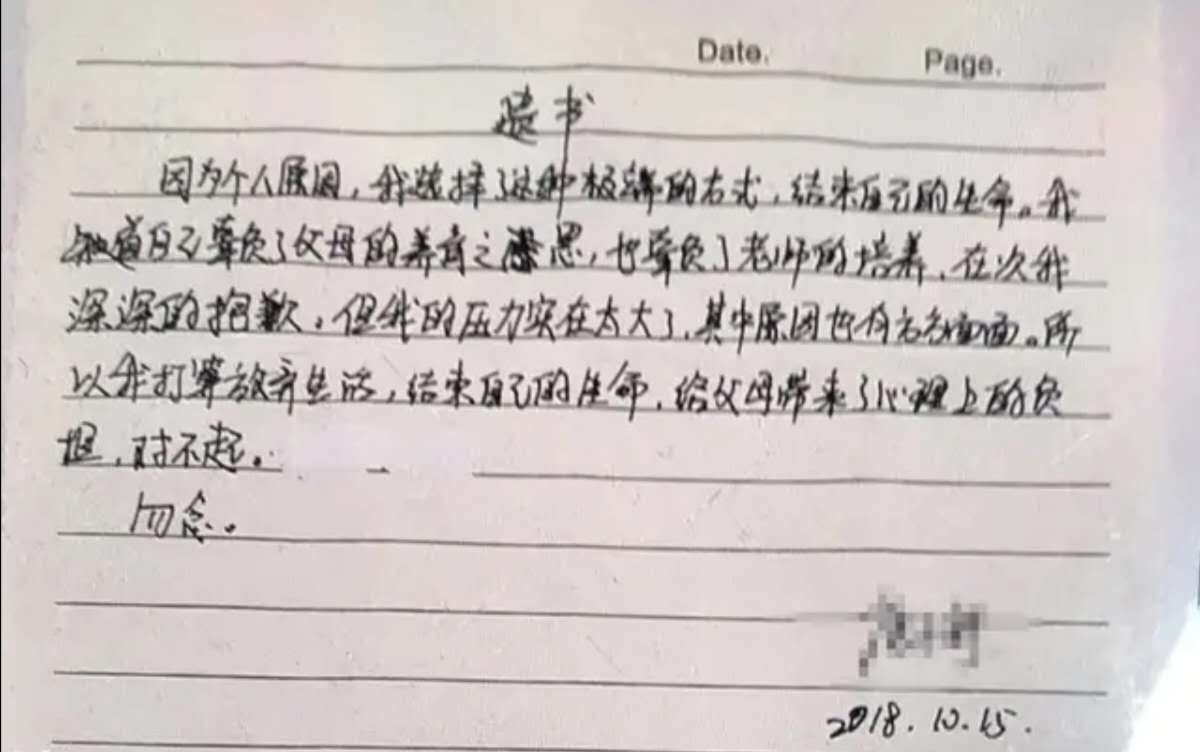 Date.
Page.
遗书
因为个人原因，我选择了这种极端的方式，结束自己的生命。我
知道自己辜负了父母的养育之恩，也辜负了老师的培养，在次我
深深的抱歉。但我的压力实在太大了，其中原因也有方方面面。所
以我打算放弃生活，结束自己的生命，给父母带来了心理上的负
担，对不起。
勿念。
2018.10.15.